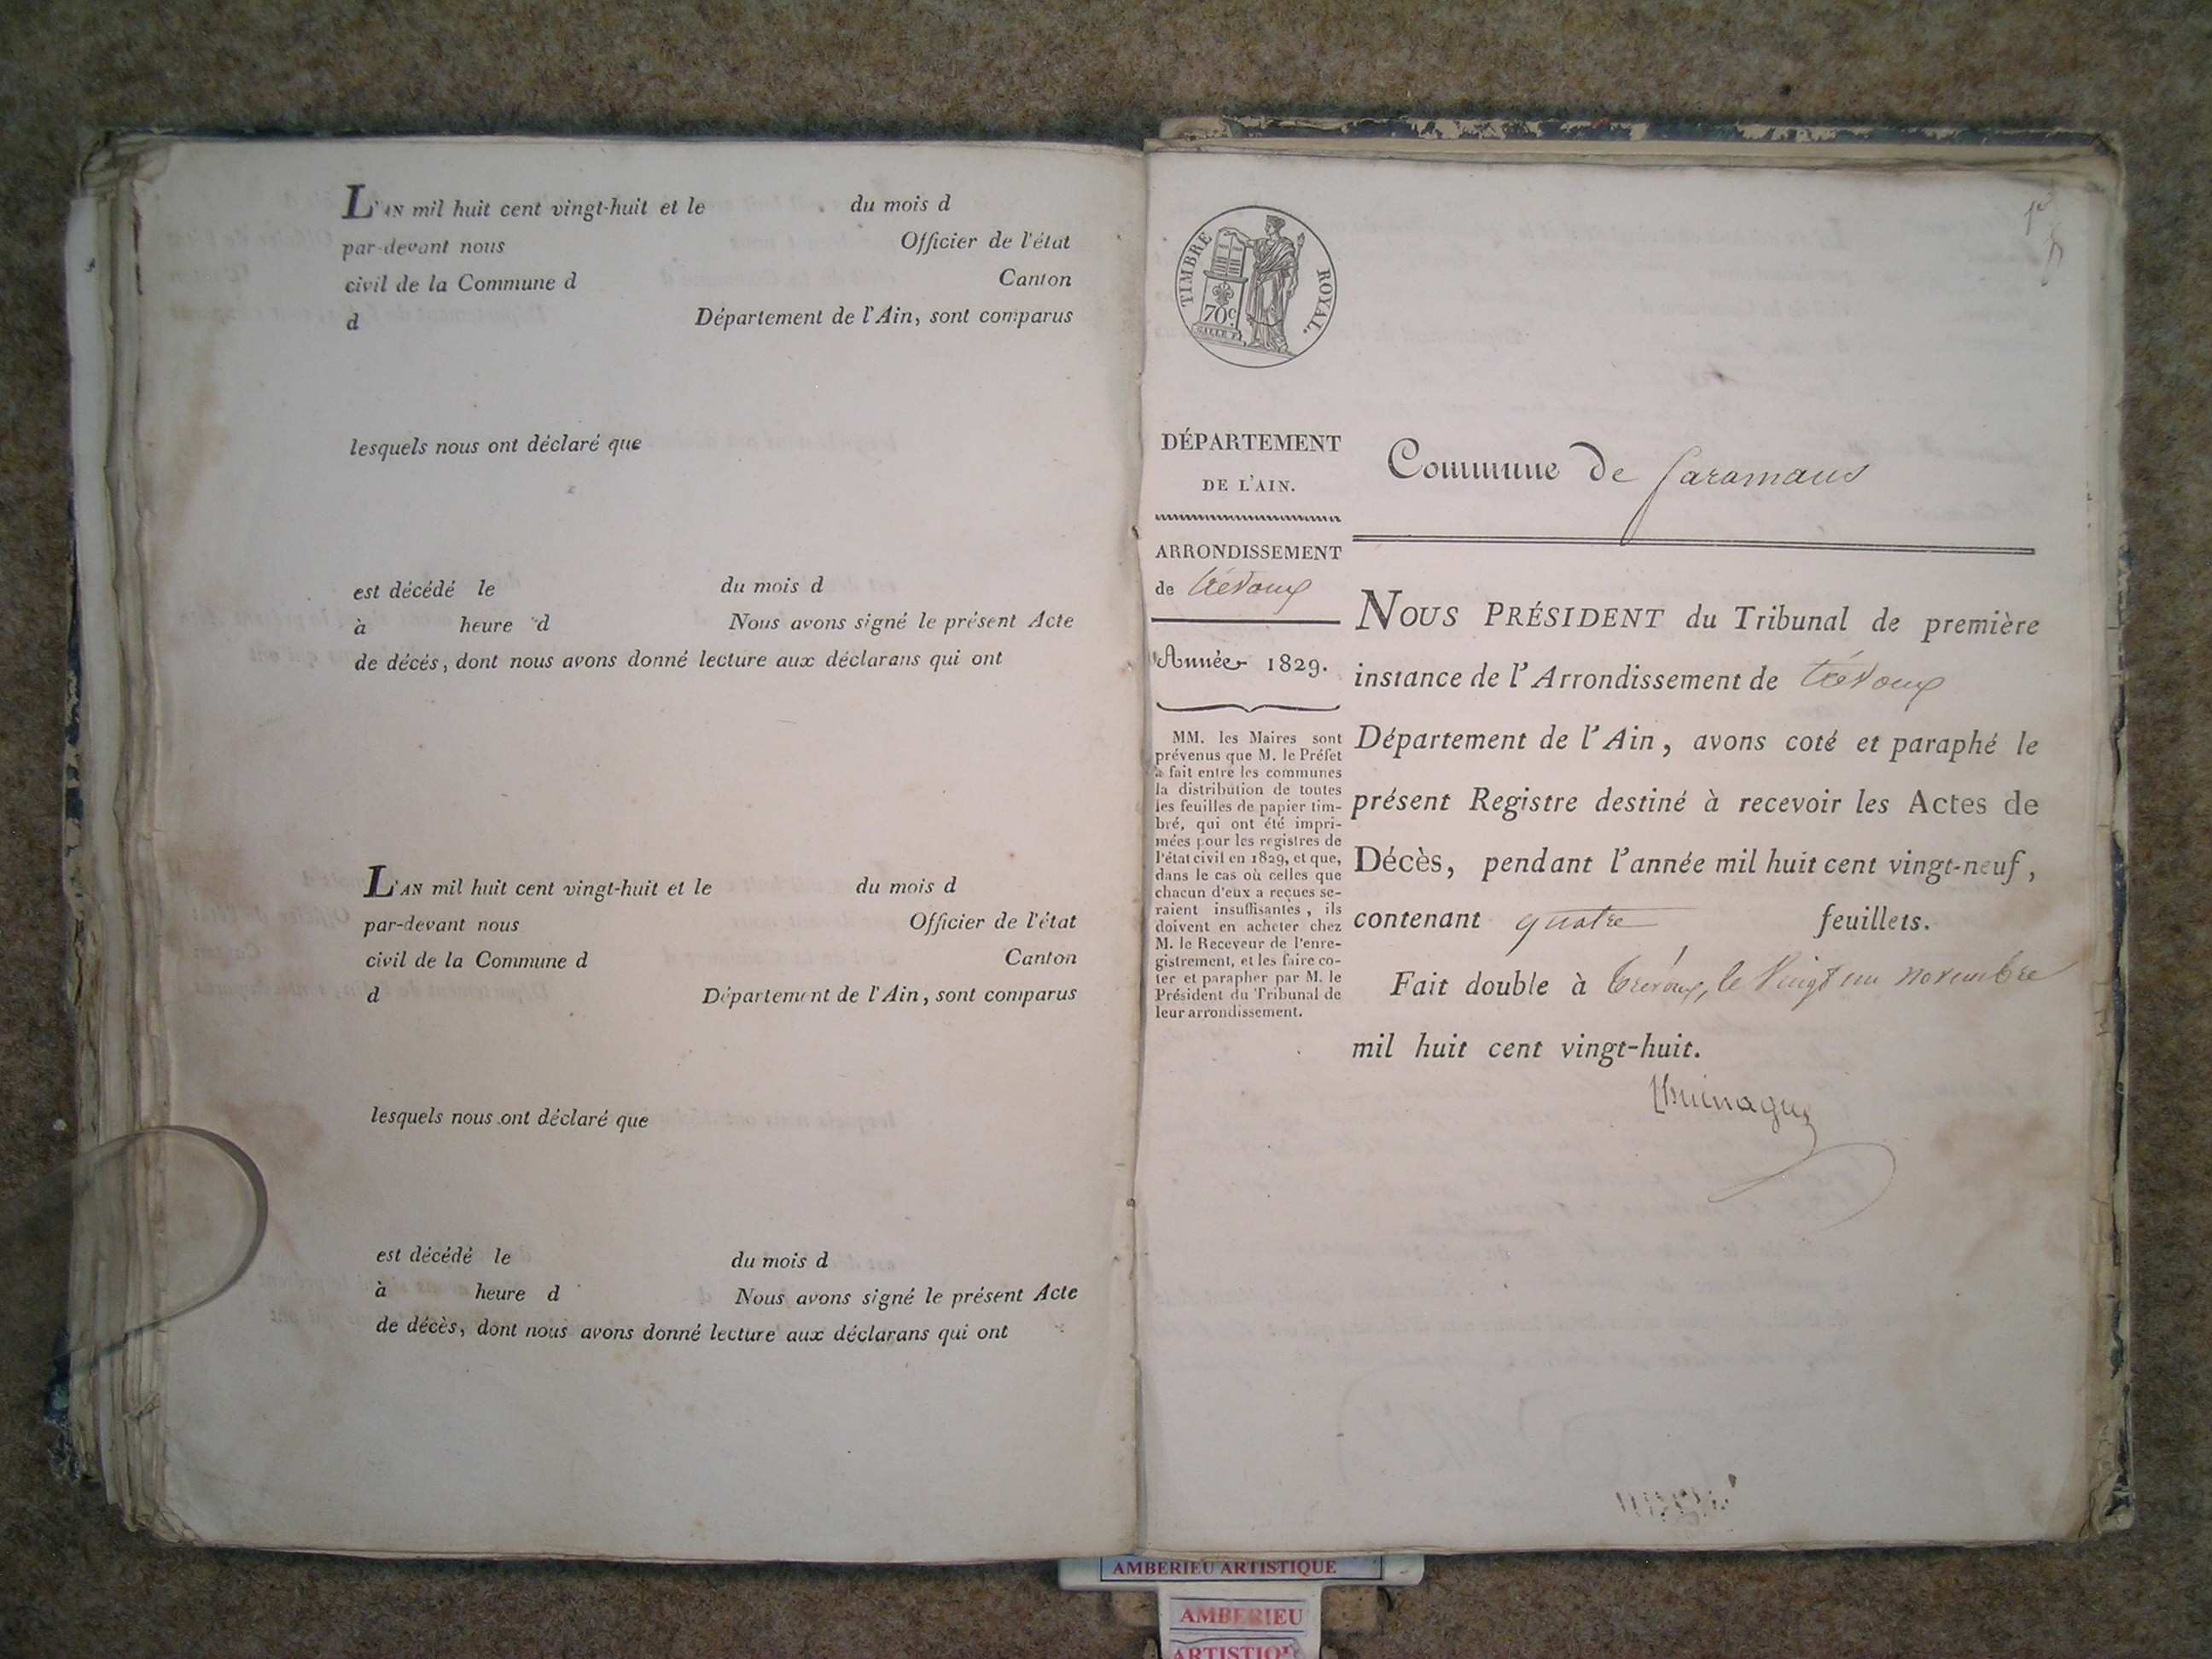 L'AN mil huit cent vingt-huit et le du mois d
par-devant nous Officier de l'état
civil de la Commune d Canton
d Département de l'Ain, sont comparus
lesquels nous ont déclaré que
est décédé le du mois d
à heure d Nous avons signé le présent Acte
de décés, dont nous avons donné lecture aux déclarans qui ont
L'AN mil huit cent vingt-huit et le du mois d
par-devant nous Officier de l'état
civil de la Commune d Canton
d Département de l'Ain, sont comparus
lesquels nous ont déclaré que
est décédé le du mois d
à heure d Nous avons signé le présent Acte
de décès, dont nous avons donné lecture aux déclarans qui ont
TIMBRE ROYAL.
70c
DÉPARTEMENT
DE L'AIN.
ARRONDISSEMENT
de Trévoux
Année 1829.
MM. les Maires sont
prévenus que M. le Préfet
a fait entre les communes
la distribution de toutes
les feuilles de papier tim-
bré, qui ont été impri-
mées pour les registres de
l'état civil en 1829, et que,
dans le cas où celles que
chacun d'eux a reçues se-
raient insuffisantes, ils
doivent en acheter chez
M. le Receveur de l'enre-
gistrement, et les faire co-
ter et parapher par M. le
Président du Tribunal de
leur arrondissement.
Commune de Faramans
NOUS PRÉSIDENT du Tribunal de première
instance de l'Arrondissement de Trévoux
Département de l'Ain, avons coté et paraphé le
présent Registre destiné à recevoir les Actes de
Décès, pendant l'année mil huit cent vingt-neuf,
contenant quatre feuillets.
Fait double à Trévoux, le Vingt un novembre
mil huit cent vingt-huit.
AMBERIEU ARTISTIQUE
AMBERIEU
ARTISTIQUE